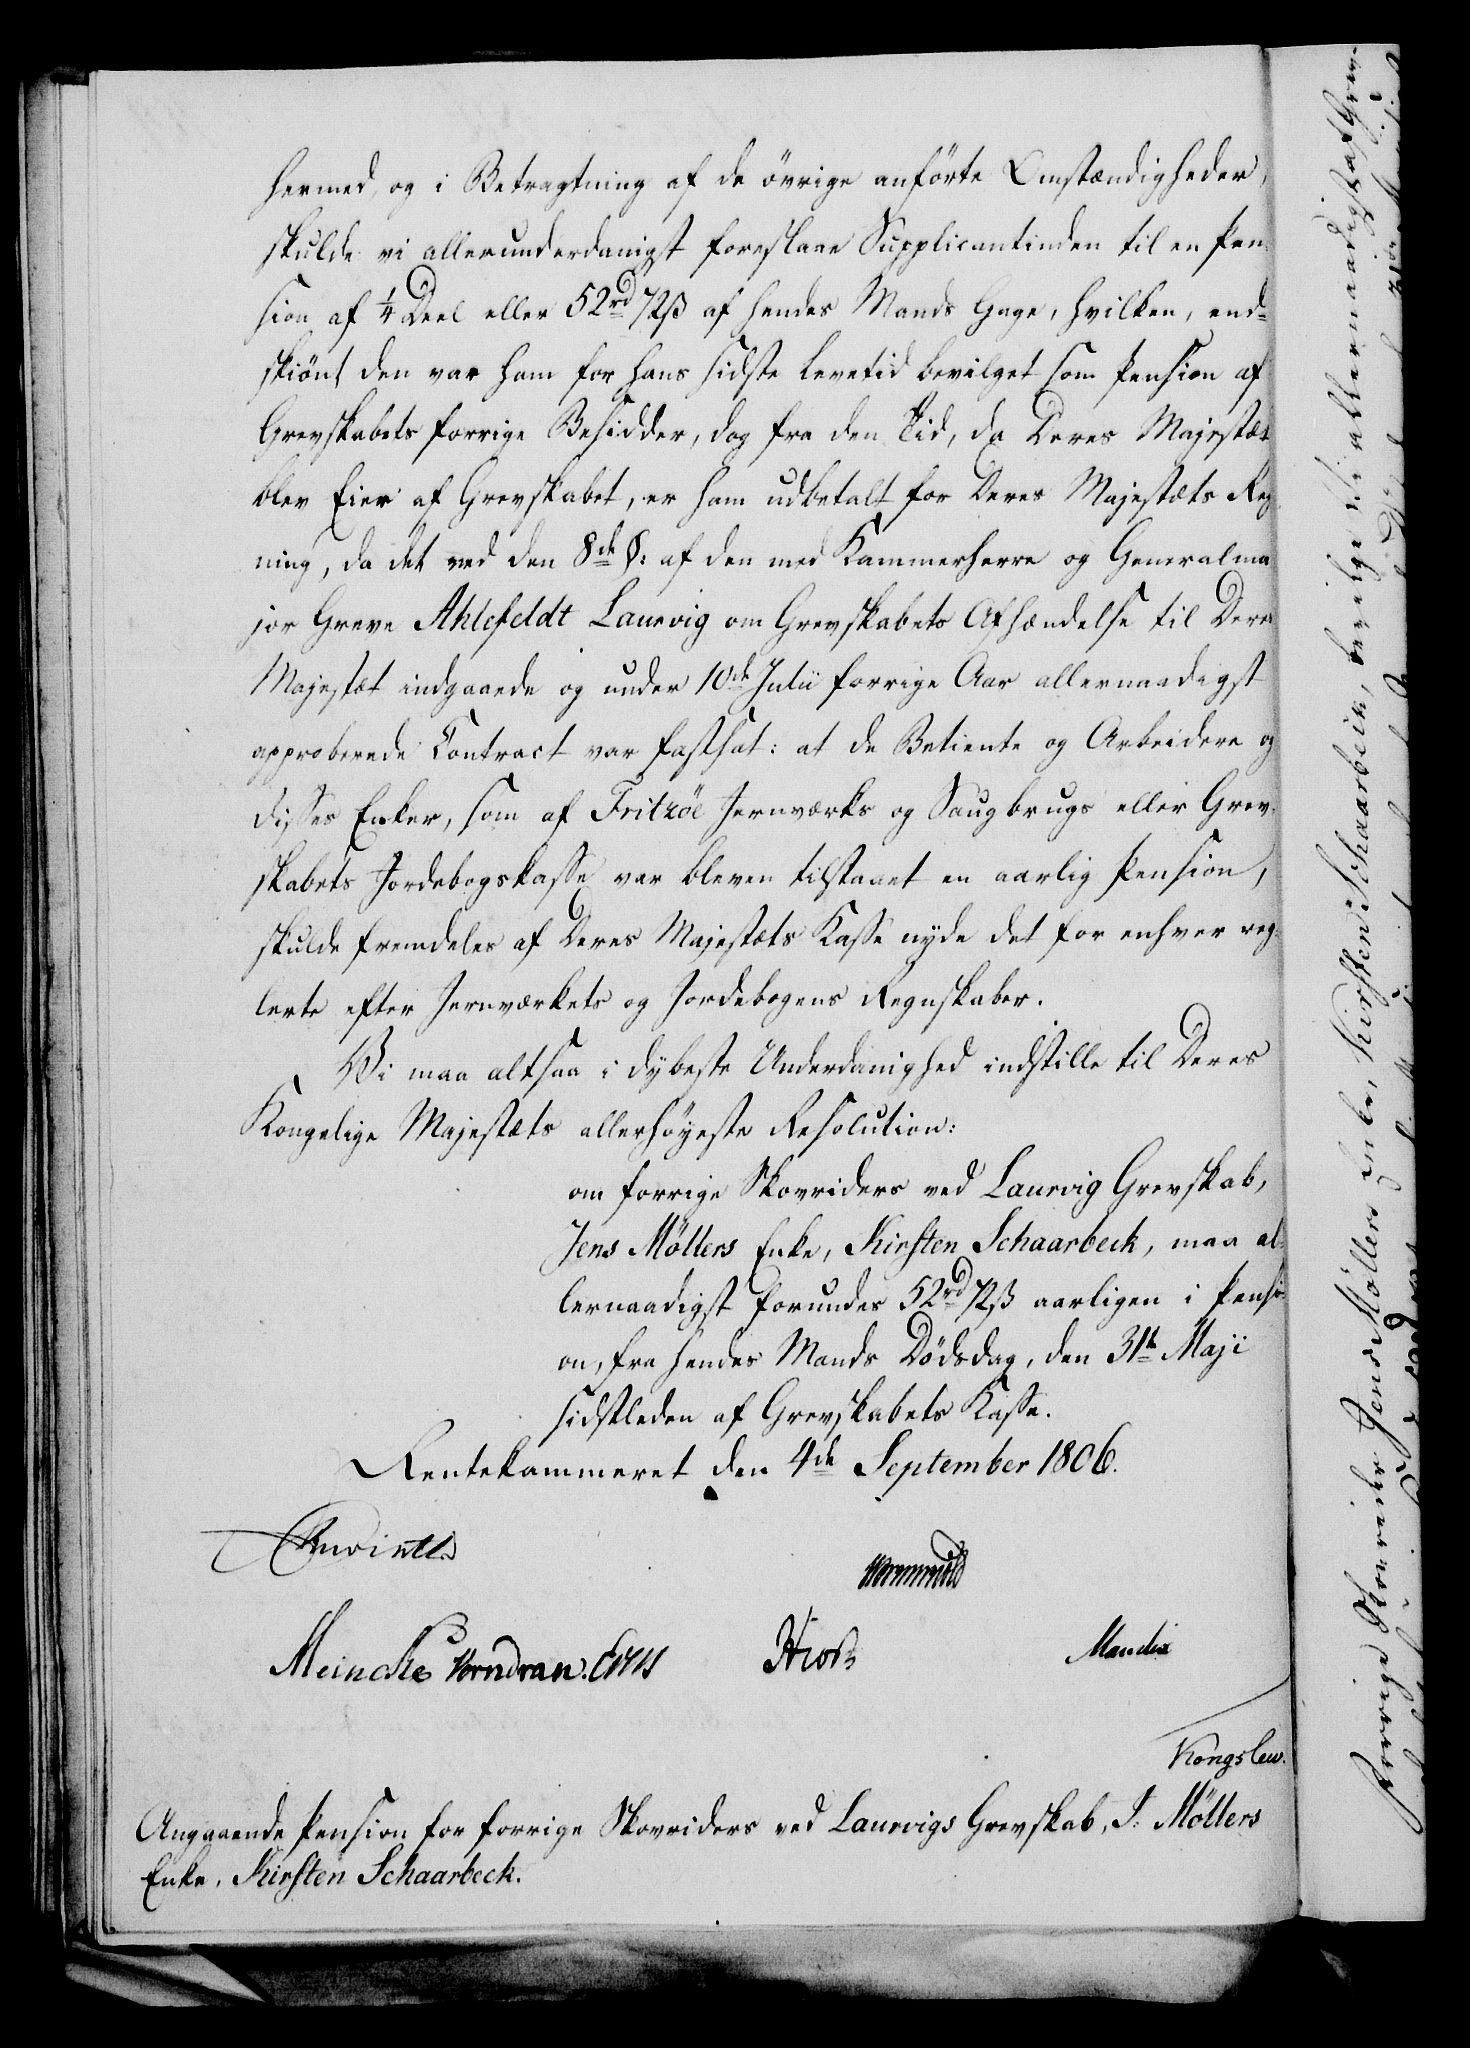 hermed, og i Betragtning af de øvrige anførte Omstændigheder,
skulde vi allerunderdanigst foreslaae Supplicantinden til en Pen-
sion af 1/4 Deel eller 52rd 72ß af hendes Mands Gage, hvilken, end-
skiønt den var ham for hans sidste Levetid bevilget som Pension af
Grevskabets forrige Besidder, dog fra den Tid, da Deres Majestæt
blev Eier af Grevskabet, er ham udbetalt for Deres Majestæts Reg-
ning, da det ved den 8de §: af den med Kammerherre og Generalma
jor Greve Ahlefeldt Laurvig om Grevskabets Afhændelse til Deres
Majestæt indgaaede og under 10de Julii forrige Aar allernaadigst
approberede Contract var fastsat: at de Betiente og Arbeidere og
disses Enker, som af Fritzöe Jernværks og Saugbrugs eller Grev-
skabets Jordebogskasse var bleven tilstaaet en aarlig Pension,
skulde fremdeles af Deres Majestæts Kasse nyde det for enhver reg-
lerte efter Jernværkets og Jordebogens Regnskaber.
Vi maa altsaa i dybeste Underdanighed indstille til Deres
Kongelige Majestæts allerhøyeste Resolution:
om forrige Skovriders ved Laurvig Grevskab,
Jens Möllers Enke, Kirsten Schaarbeck, maa al-
lernaadigst forundes 52rd 72ß aarligen i Pensi-
on, fra hendes Mands Dødsdag, den 31te Maji
sidstleden af Grevskabets Kasse.
Rentekammeret den 4de September 1806.
Meincke Vorndran.
Hiorth
Mandix
Kongslew.
Angaaende Pension for forrige Skovriders ved Laurvigs Grevskab, J. Möllers
Enke, Kirsten Schaarbeck.
forrige Skovrider Jens Möllers Enke, Kirsten Schaarbeck,